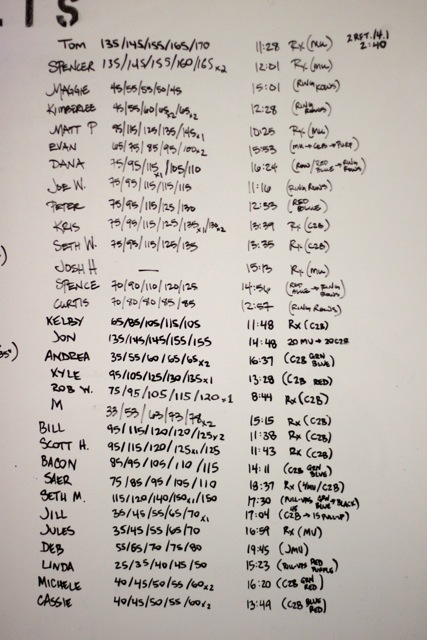 TS
TOM 135/145/155/165/170 11:28 Rx (MU) 2 RFT./4.1 2:40
SPENCER 135/145/155/160/165x2 12:01 Rx (MU)
MAGGIE 45/55/55/50/45 15:01 (RING ROWS)
KIMBERLEE 45/55/60/65x2/65x2 12:28 (RING ROWS)
MATT P 95/115/125/135/145x1 10:25 Rx (MU)
EVAN 65/75/85/95/100x2 15:53
DANA 75/95/115x1/105/110 16:24 (ROW/RED BLUE → RING ROWS)
JOE W. 75/95/115/115/115 11:16 (RING ROWS)
PETER 75/95/115/125/130 12:33 (RED BLUE)
KRIS 75/95/115/125/135x1/130x2 13:39 Rx (C2B)
SETH W. 75/95/115/125/135 13:35 Rx (C2B)
JOSH H — 15:13 Rx (MU)
SPENCE 70/90/110/120/125 14:56 (RED BLUE → RING ROWS)
CURTIS 70/80/80/85/85 12:57 (RING ROWS)
KELBY 65/85/105/115/105 11:48 Rx (C2B)
JON 135/145/145/155/155 14:48 20 MU → 20 C2B
35#)
ANDREA 35/55/60/65/65x2 16:37 (C2B GRN BLUE)
KYLE 95/105/125/130/135x1 13:28 (C2B RED)
ROB W. 75/95/105/115/120x1 8:44 Rx (C2B)
M 33/53/63/73/78x2 15:15 Rx (C2B)
BILL 95/115/120/120/125x2 11:38 Rx (C2B)
SCOTT H. 95/115/120/125x1/125 11:43 Rx (C2B)
BACON 85/95/105/110/115 14:11 (C2B GRN BLUE)
SAER 75/85/95/105/110 18:37 Rx
SETH M. 115/120/140/150x1/150 17:30 (PULL-UPS GRN BLUE → BLACK)
JILL 35/45/55/65/70x1 17:04 (C2B → 15 PULL-UP)
JULES 35/45/55/65/70 16:59 Rx (MU)
DEB 55/65/70/75/80 19:45 (JMU)
LINDA 25/35/40/45/50 15:23 (PULL-UPS RED PURPLE)
MICHELE 40/45/50/55/60x2 16:20 (C2B GRN RED)
CASSIE 40/45/50/55/60x2 13:49 (C2B BLUE RED)